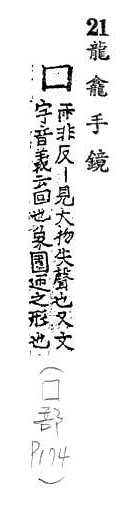 21龍龕手鏡
囗
雨非反丨見大物失聲也又文
字音義云回也象圍迊之形也
(囗部P174)